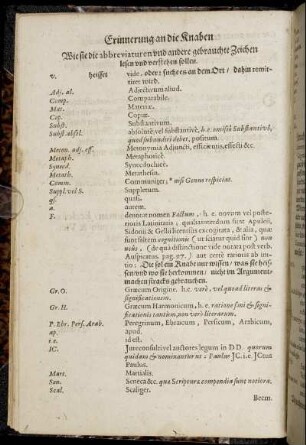 Erinnerung an die Knaben
Wie sie die abbreviaturen und andere gebrauchte Zeichen
lesen und verstehen sollen.
v. heisset vide, oder: suche es an dem Ort / dahin remit-
tiret wird.
Adj. al. Adiectivum aliud.
Comp. Comparabile.
Mat. Materiæ.
Cop. Copiæ.
Subst. Substantivum.
Subst. absol. absolutè vel substantivè, h. e. omisso Substantivo,
quod subaudiri debet, positum.
Metom. adj. eff. Metonymia Adjuncti, efficientis, effecti &c.
Metaph. Metaphoricè.
Syned. Synecdochicè.
Metath. Metathesin.
Comm. Communiter, * nisi Genus respiciat.
Suppl. vel S. Suppletum.
q. quasi.
a. autem.
F. denotat nomen Factum, h. e. novum vel poste-
rioris Latinitatis; qualia interdum sunt Apuleii,
Sidonii & Gellii licentius excogitata, & alia, quæ
sunt saltem cognationis (ut sciatur quid sint) non
usus, (de quâ distinctione vide notata post verb.
Auspicatus. pag. 97.) aut certè rarioris ab in-
itio: Die sol ein Knabe nur wissen / was sie heis-
sen und wo sie herkommen / nicht im Argument-
machen stracks gebrauchen.
Gr. O. Græcum Origine. h. e. verè, vel quoad literas &
significationem.
Gr. H. Græcum Harmonicum, h. e. ratione soni & signi-
ficationis tantùm, non verò literarum.
P. Ebr. Pers. Arab. Peregrinum, Ebraeum, Persicum, Arabicum,
ap. apud.
i. e. id est.
JC. Jurisconsulti vel auctores legum in DD. quorum
quidam & nominantur ut: Paulus JC. i. e. JCtus
Paulus.
Mart. Martialis.
Sen. Seneca &c. quæ Scripturæ compendia sunt notiora.
Scal. Scaliger.